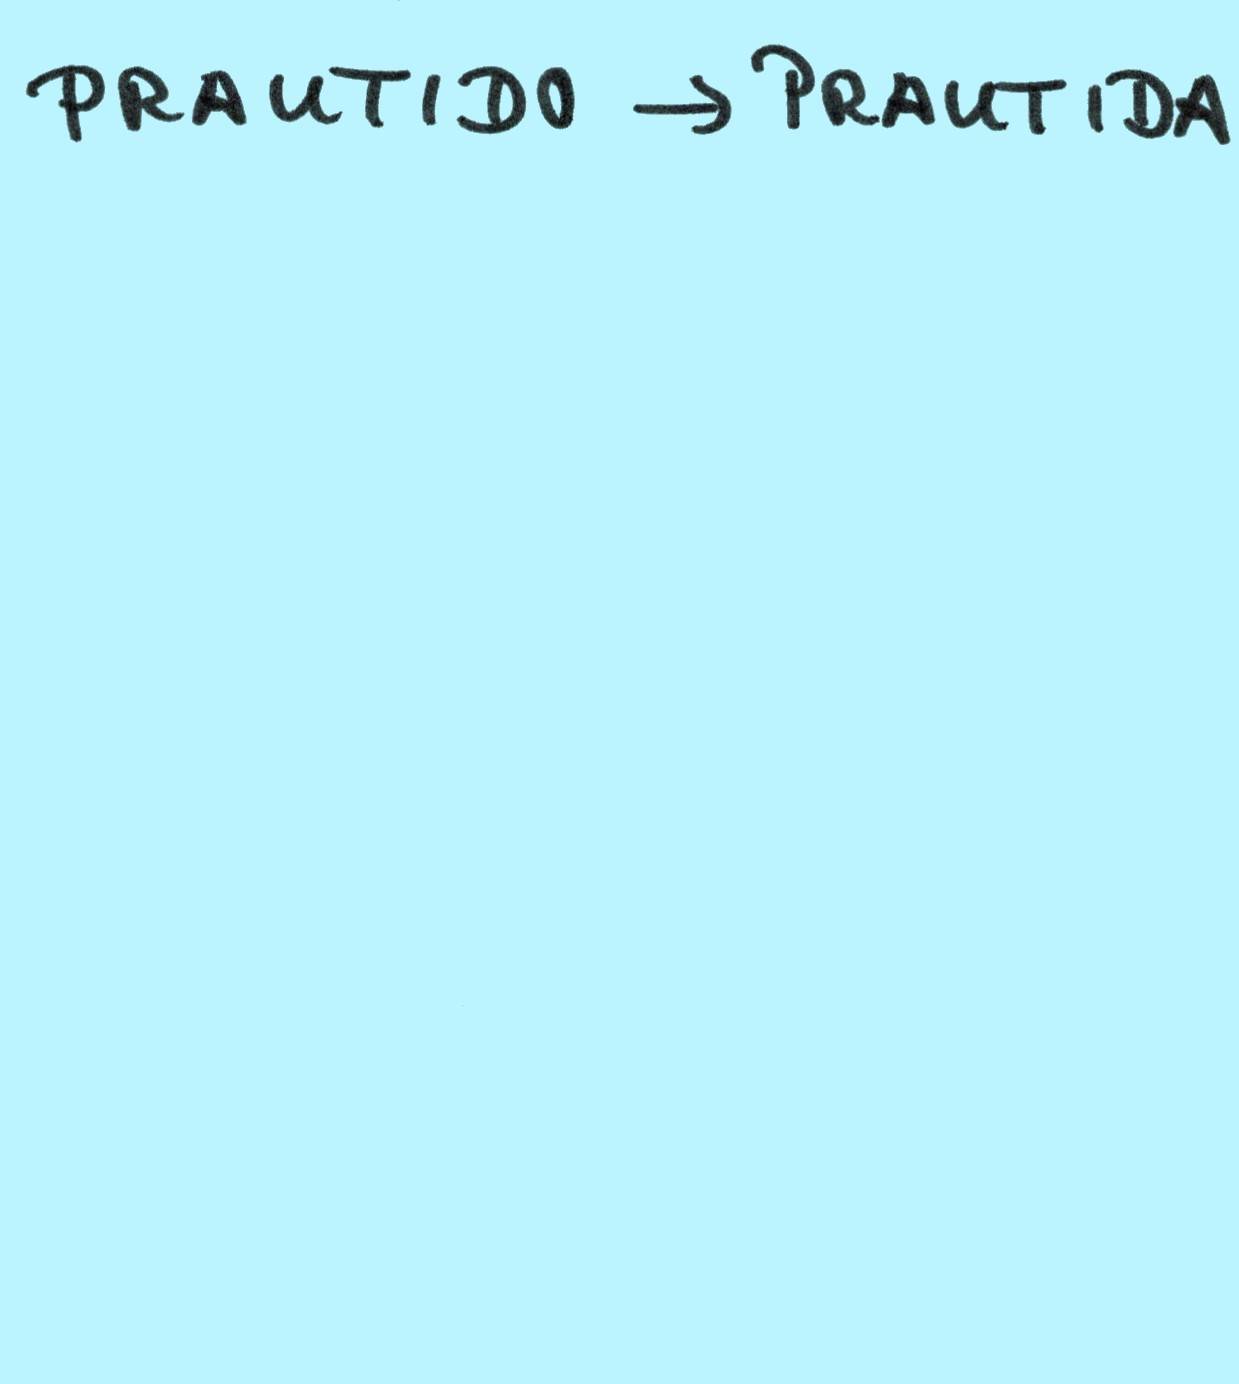 PRAUTIDO → PRAUTIDA